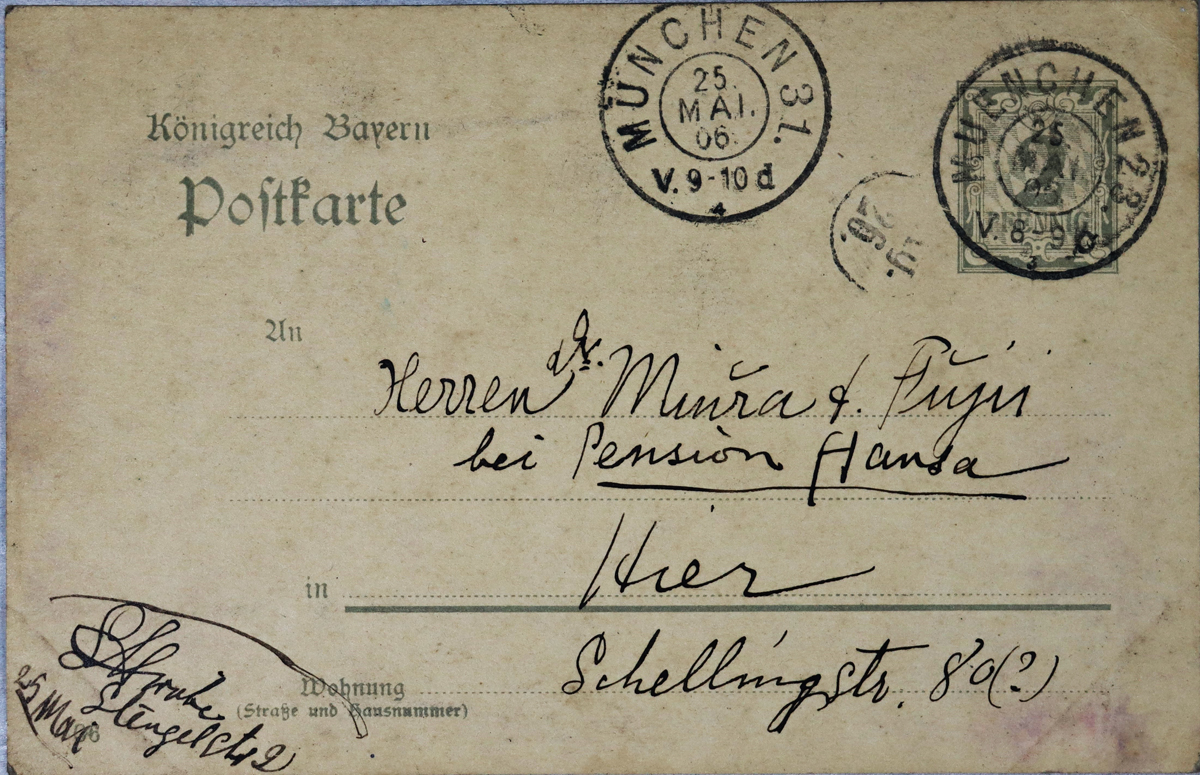 MÜNCHEN 31.
25.
MAI.
06.
V. 9-10 d
4
MUENCHEN 23.
25
MAI
V. 8-9
3
PFENNIG
26.
Königreich Bayern
Postkarte
An
Herren Dr. Miura & Fujii
bei Pension Hansa
in Hier
Schellingstr. 80(?)
Wohnung
(Straße und Hausnummer)
Stengelstr 2
25 Mai